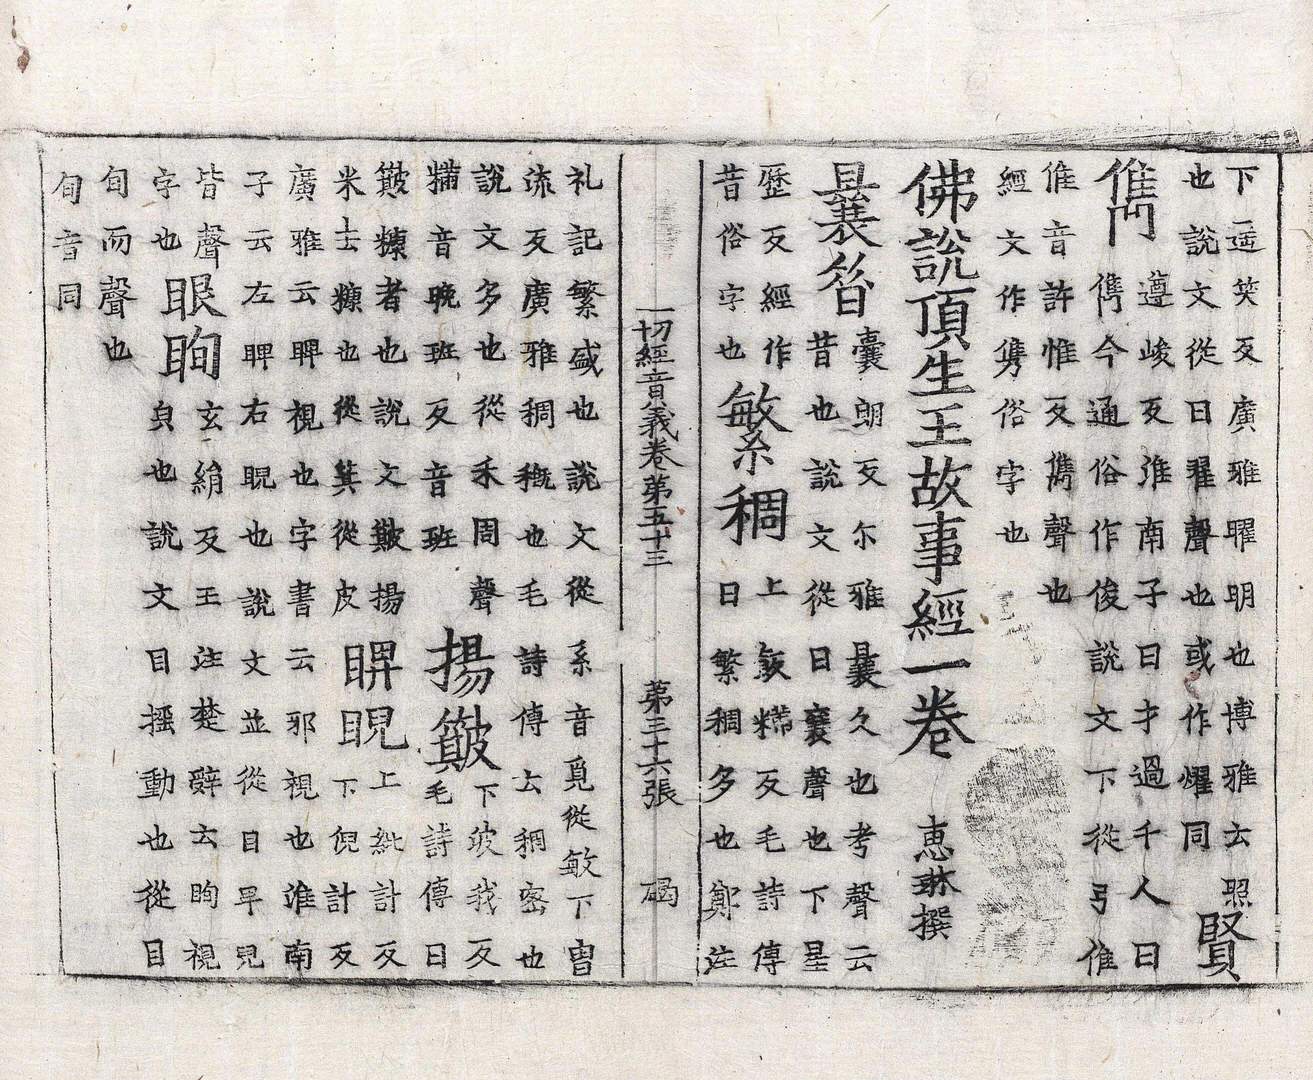 下遥笑反廣雅曜明也博雅云照
也說文從日翟聲也或作燿同賢
儁 遵峻反淮南子曰才過千人曰
儁今通俗作俊說文下從弓隹
隹音許惟反雋聲也
經文作㑺俗字也
佛說頂生王故事經一卷 惠琳撰
曩昝 囊朗反尒雅曩久也考聲云
昔也說文從日襄聲也下星
歷反經作
昔俗字也
繁稠 上 糒反毛詩傳
曰繁稠多也鄭注
一切經音義卷第五十三 第三十六張 碣
礼記繁盛也說文從系音覓從敏下冑
流反廣雅稠穊也毛詩傳云稠密也
說文多也從禾周聲
揚簸 下波我反
毛詩傳曰
𥻂音晚班反音班
簸糠者也說文簸揚
米士糠也從箕從皮
睥睨 上紕計反
下倪計反
廣雅云睥視也字書云邪視也淮南
子云左睥右睨也說文並從目卑兒
皆聲
字也
眼眴 玄絹反王注楚辭云眴視
皃也說文目摇動也從目
旬而聲也
旬音同